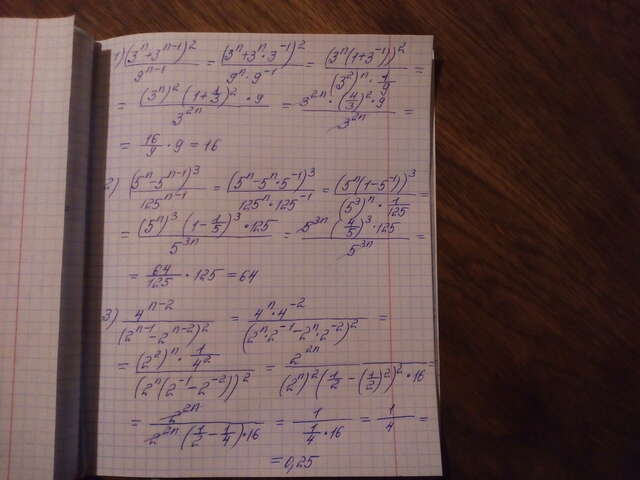 1) (3^n+3^{n-1})^2 / 9^{n-1} = (3^n+3^n·3^{-1})^2 / 9^n·9^{-1} = (3^n(1+3^{-1}))^2 / (3^2)^n·1/9 =
= (3^n)^2 (1+1/3)^2·9 / 3^{2n} = 3^{2n}·(4/3)^2·9 / 3^{2n} =
= 16/9·9 = 16
2) (5^n-5^{n-1})^3 / 125^{n-1} = (5^n-5^n·5^{-1})^3 / 125^n·125^{-1} = (5^n(1-5^{-1}))^3 / (5^3)^n·1/125 =
= (5^n)^3 (1-1/5)^3·125 / 5^{3n} = 5^{3n}(4/5)^3·125 / 5^{3n} =
= 64/125·125 = 64
3) 4^{n-2} / (2^{n-1}-2^{n-2})^2 = 4^n·4^{-2} / (2^n·2^{-1}-2^n·2^{-2})^2 =
= (2^2)^n·1/4^2 / (2^n(2^{-1}-2^{-2}))^2 = 2^{2n} / (2^n)^2(1/2-(1/2)^2)^2·16 =
= 2^{2n} / 2^{2n}(1/2-1/4)·16 = 1 / 1/4·16 = 1/4 =
= 0,25